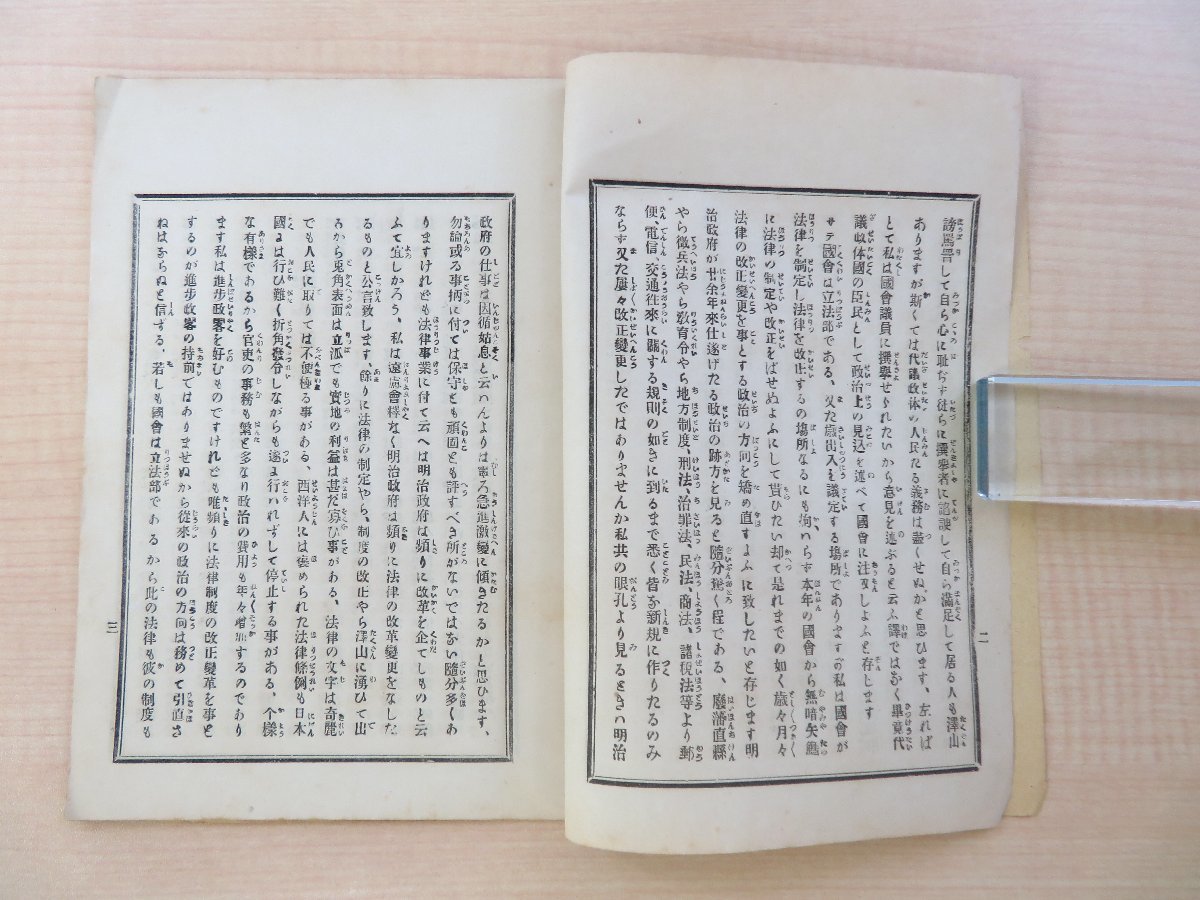 謗罵詈して自ら心に恥ぢず徒らに撰擧者に諂諛して自ら滿足して居る人も澤山
ありますが斯くては代議政体の人民たる義務は盡くせぬかと思ひます、左れば
とて私は國會議員に撰擧せられたいから意見を述ぶると云ふ譯ではなく畢竟代
議政体國の臣民として政治上の見込を述べて國會に注文しよふと存じます
サテ國會は立法部である、又た歳出入を議定する塲所でありますが私は國會が
法律を制定し法律を改正するの塲所なるにも拘いらず本年の國會から無暗矢鱈
に法律の制定や改正をばせぬよふにして貰ひたい却て是れまでの如く歳々月々
法律の改正變更を事とする政治の方向を矯め直すよふに致したいと存じます明
治政府が廿余年來仕遂げたる政治の跡方を見ると隨分驚く程である、廢藩直縣
やら徴兵法やら敎育令やら地方制度、刑法、治罪法、民法、商法、諸税法等より郵
便、電信、交通往來に關する規則の如きに到るまで悉く皆な新規に作りたるのみ
ならず又た屢々改正變更したではありませんか私共の眼孔より見るときハ明治
二
政府の仕事は因循姑息と云ハんよりは寧ろ急進激變に傾きたるかと思ひます、
勿論或る事柄に付ては保守とも頑固とも評すべき所がないではない隨分多くあ
りますけれども法律事業に付て云へは明治政府は頻りに改革を企てしものと云
ふて宜しかろう、私は遠慮會釋なく明治政府は頻りに法律の改革變更をなした
るものと公言致します、餘りに法律の制定やら、制度の改正やら澤山に湧ひて出
るから兎角表面は立派でも實地の利益は甚だ寡ひ事がある、法律の文字は奇麗
でも人民に取りては不便極る事がある、西洋人には褒められた法律條例も日本
國には行ひ難く折角發分しながらも遂に行ハれずして停止する事がある、个樣
な有樣であるから官吏の事務も繁と多なり政治の費用も年々增加するのであり
ます私は進步政畧を好むものですけれども唯頻りに法律制度の改正變革を事と
するのが進步政畧の持前ではありませぬから從來の政治の方向は務めて引直さ
ねばならぬと信ずる、若しも國會は立法部であるから此の法律も彼の制度も
三